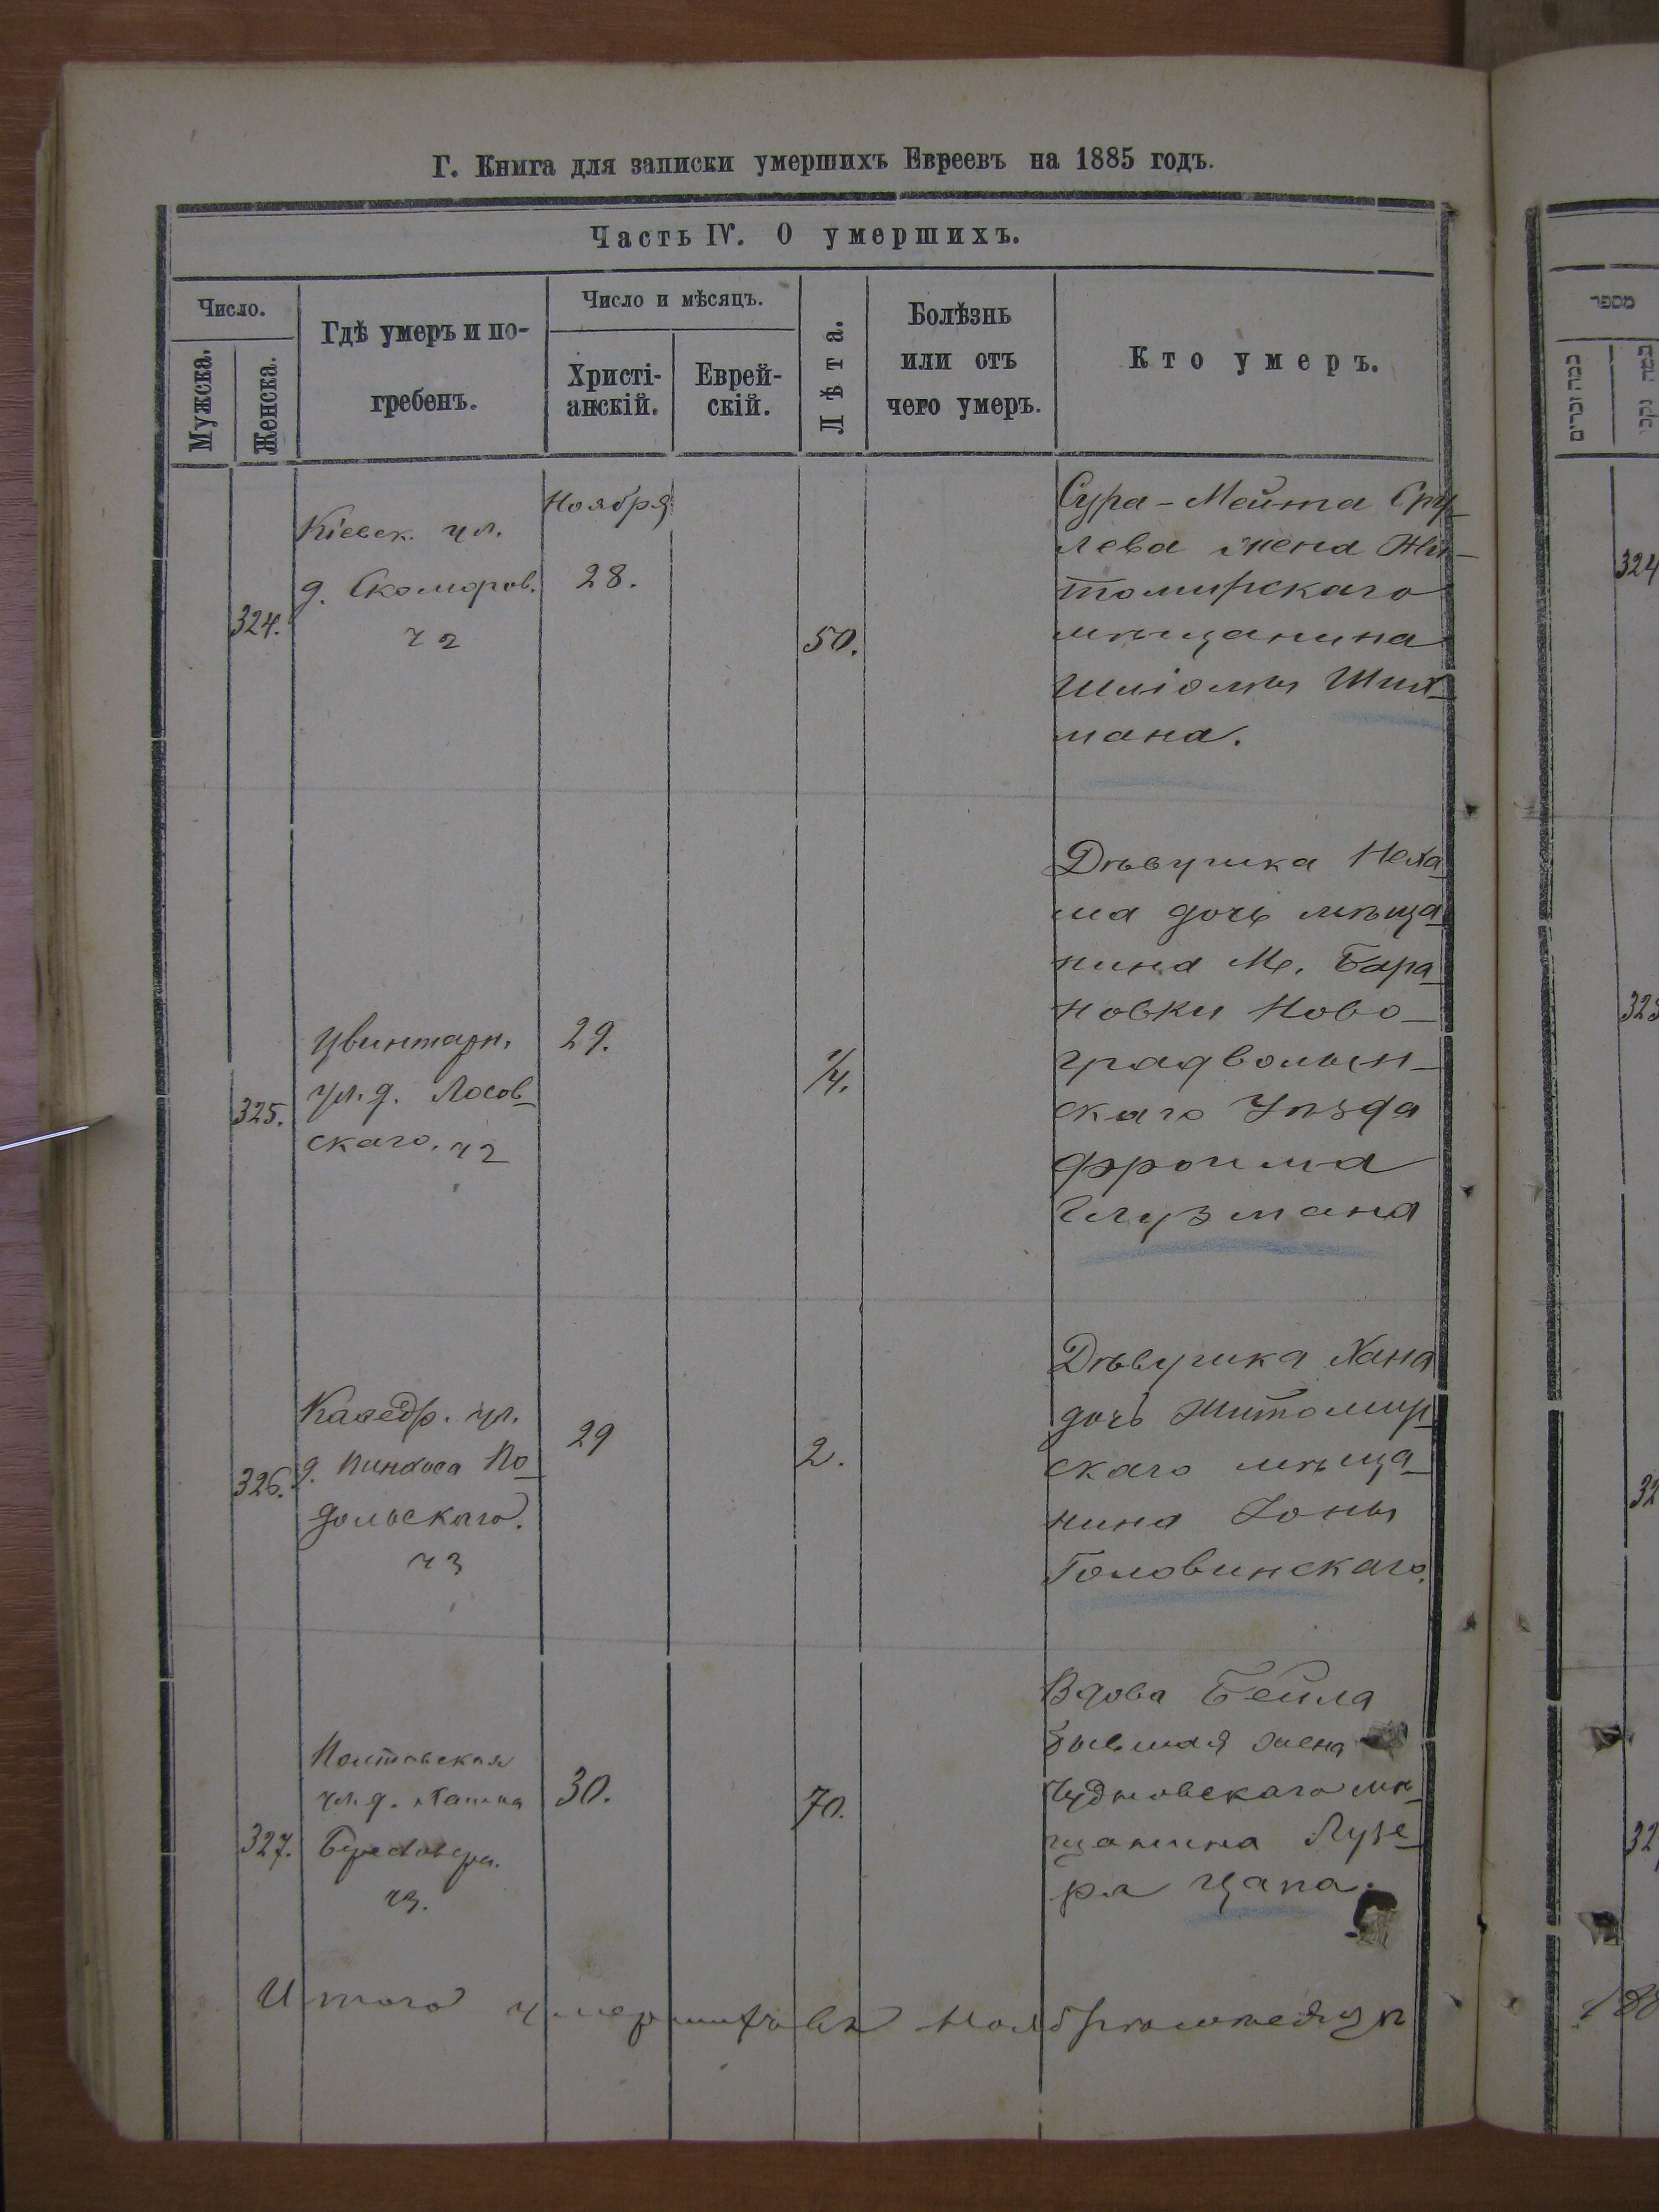 Г. Книга для записки умершихъ Евреевъ на 1885 годъ.
Часть IV. О умершихъ.
Число.
Мужска.
Женска.
Гдѣ умеръ и по-
гребенъ.
Число и мѣсяцъ.
Христі-
анскій.
Еврей-
скій.
Лѣта.
Болѣзнь
или отъ
чего умеръ.
Кто умеръ.
324.
Кіевск. ул.
д. Скоморов.
ч 2
Ноября
28.
50.
Сура-Мейта Сру-
лева жена Жи-
томирскаго
мѣщанина
Шліомы Ших-
мана.
325.
Цвинтарн.
ул. д. Лосов-
скаго. ч 2
29.
1/4.
Дѣвушка Неха-
ма дочь мѣща-
нина М. Бара-
новки Ново-
градволын-
скаго Уѣзда
Фроима
Глузмана
326.
Каѳедр. ул.
д. Пинхоса По-
дольскаго.
ч 3
29
2.
Дѣвушка Хана
дочь Житомир-
скаго мѣща-
нина Іоны
Головинскаго.
327.
Полтавская
ул. д.
ч 3.
30.
70.
Вдова Бейла
бывшая жена
Чудновскаго мѣ-
щанина Лузе-
ра Цапа.
Итого умершихъ въ Ноябрѣ мѣсяцѣ
מספר
324